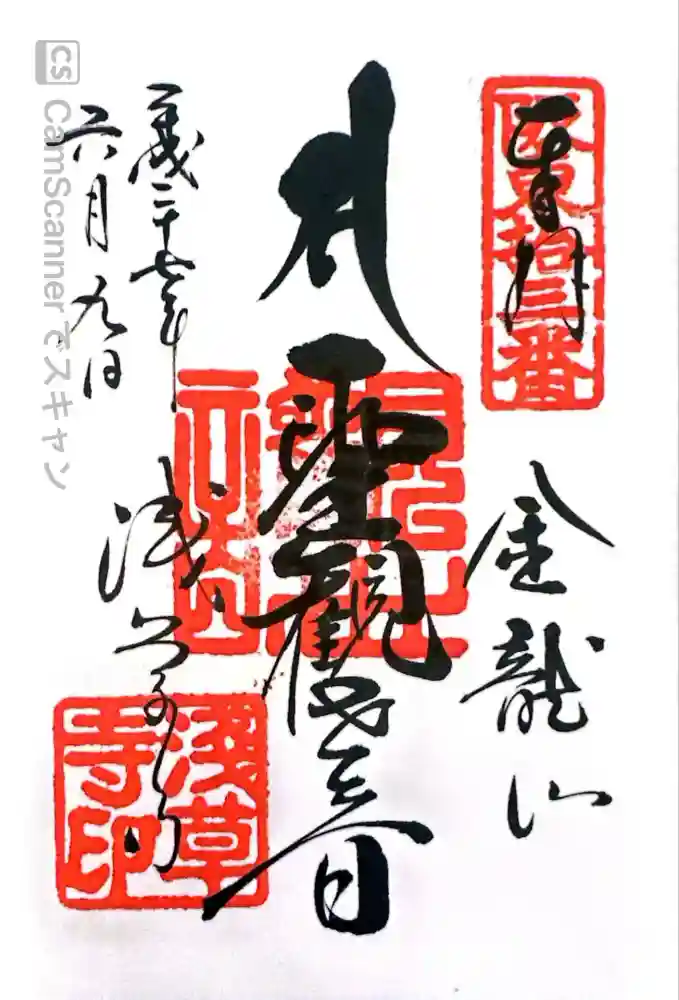 奉拝
阪東拾三番
金龍山
聖觀世音
平成二十七年
六月九日
浅草寺
淺草寺印
CS CamScannerでスキャン